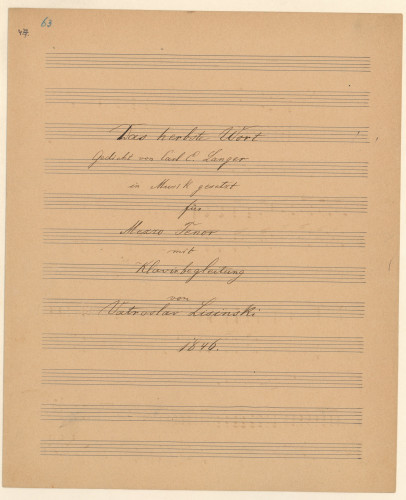 63
47
Das herbste Wort
Gedicht von Carl E. Langer
in Musik gesetzt
für
Mezzo Tenor
mit
Klavierbegleitung
von
Vatroslav Lisinski
1846.